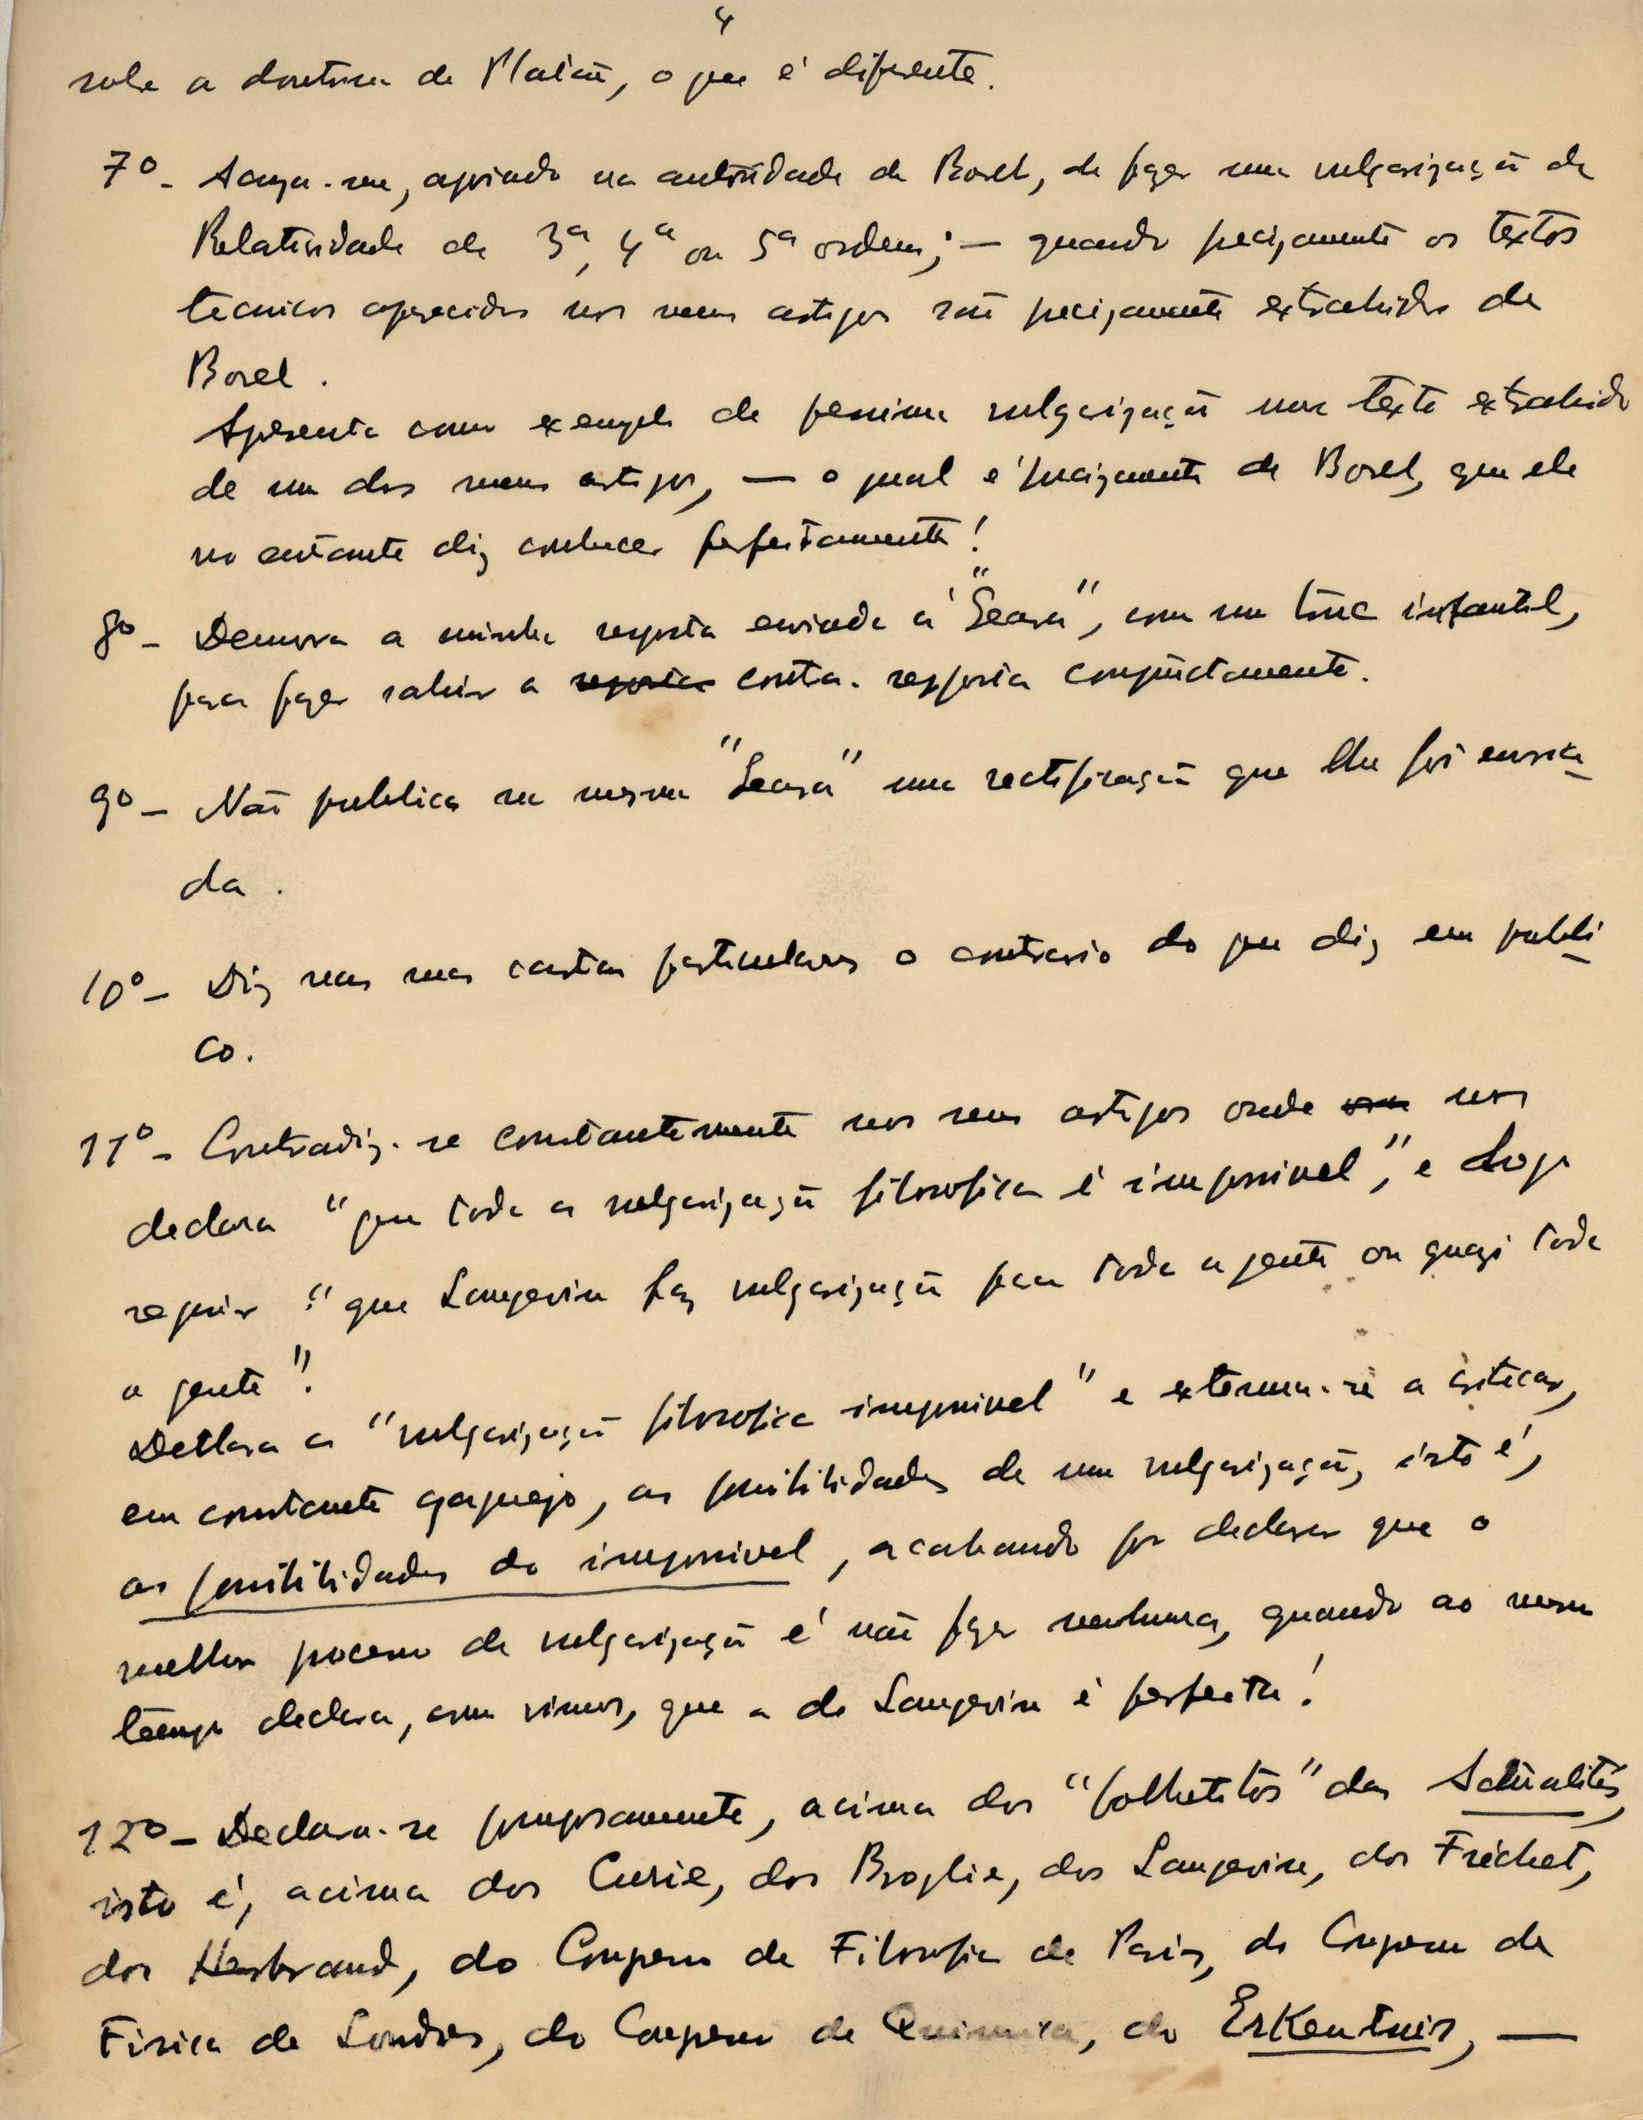 4
sobre a doutrina de Platão, o que é diferente.
7º - Acusa-me, apoiado na autoridade de Borel, de fazer uma vulgarização da
Relatividade de 3ª, 4ª ou 5ª ordem; — quando precizamente os textos
tecnicos aparecidos nos meus artigos são precizamente extrahidos de
Borel.
Apresenta como exemplo de pessima vulgarização um texto extrahido
de um dos meus artigos, — o qual é precizamente de Borel, que ele
no entanto diz conhecer perfeitamente!
8º - Demora a minha resposta enviada á "Seara", com um truc infantil,
para fazer sahir a contra-resposta conjuctamente.
9º - Não publica na mesma "Seara" uma rectificação que lhe foi envia-
da.
10º - Diz nas suas cartas particulares o contrario do que diz em publi-
co.
11º - Contradiz-se constantemente nos seus artigos onde nos
declara "que toda a vulgarização filosofica é impossivel", e logo
a seguir "que Langevin faz vulgarização para toda a gente ou quazi toda
a gente".
Declara a "vulgarização filosofica impossivel" e extenua-se a criticar,
em constante gaguejo, as possibilidades de uma vulgarização, isto é,
as possibilidades do impossivel, acabando por declarar que o
melhor processo de vulgarização é não fazer nenhuma, quando ao mesmo
tempo declara, como vimos, que a de Langevin é perfeita!
12º - Declara-se pomposamente, acima dos "folhetitos" das Actualités,
isto é, acima dos Curie, dos Broglie, dos Langevin, dos Fréchet,
dos Herbrand, do Congresso de Filosofia de Paris, do Congresso de
Fisica de Londres, do Congresso de Quimica, do Erkentnis, —